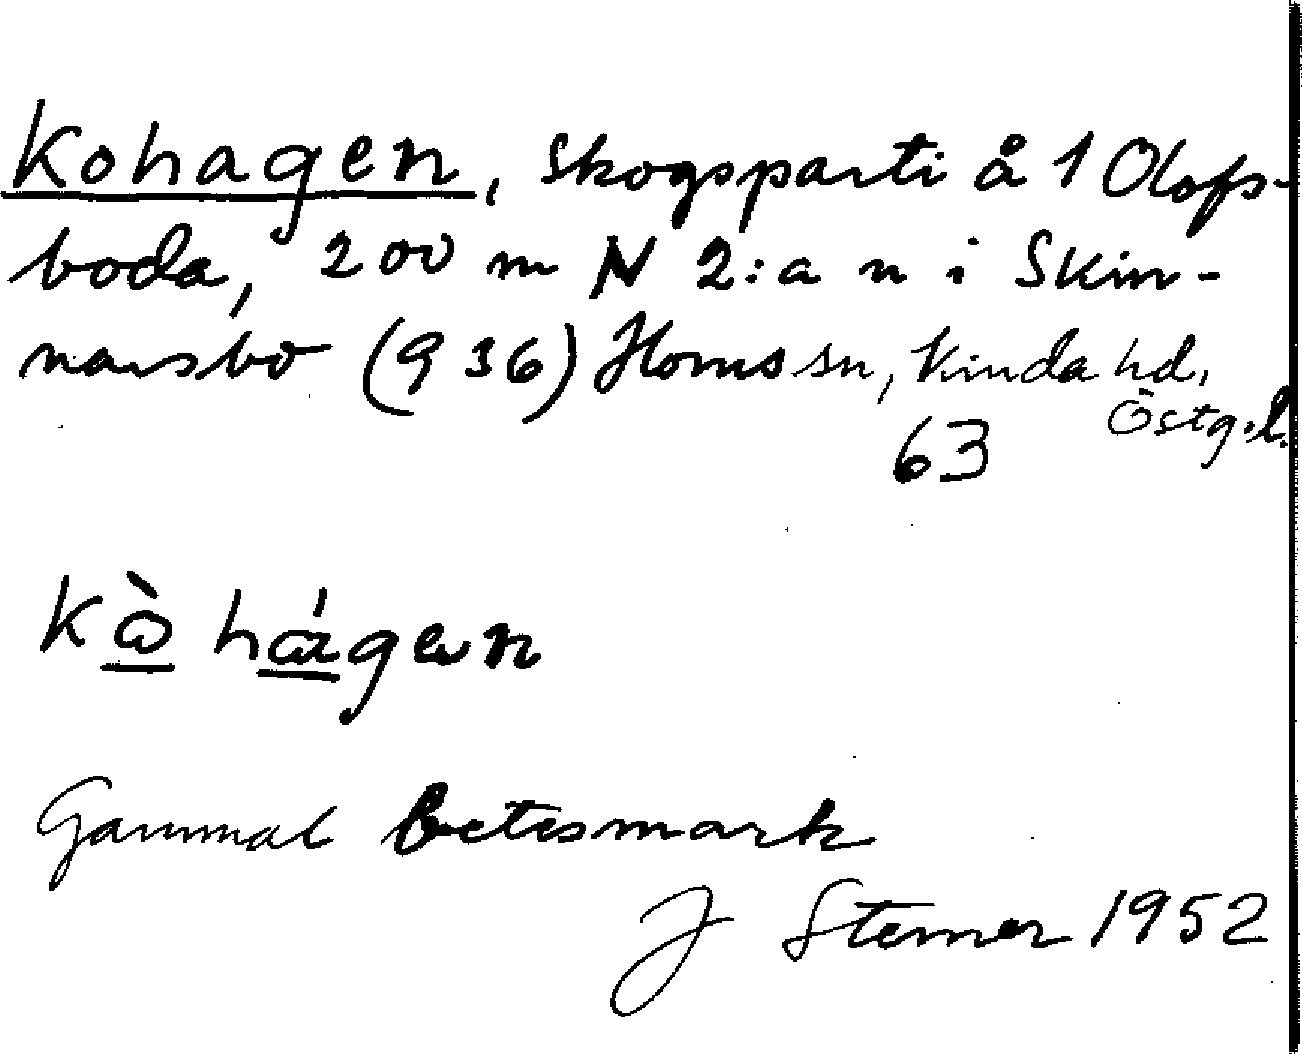 Kohagen, Skogsparti å 1 Olofs-
boda, 200 m N 2:a n i Skin-
narsbo (936) Horns sn, Kinda hd,
Östg.l.
63
kò hágen
Gammal betesmark
J Sterner 1952